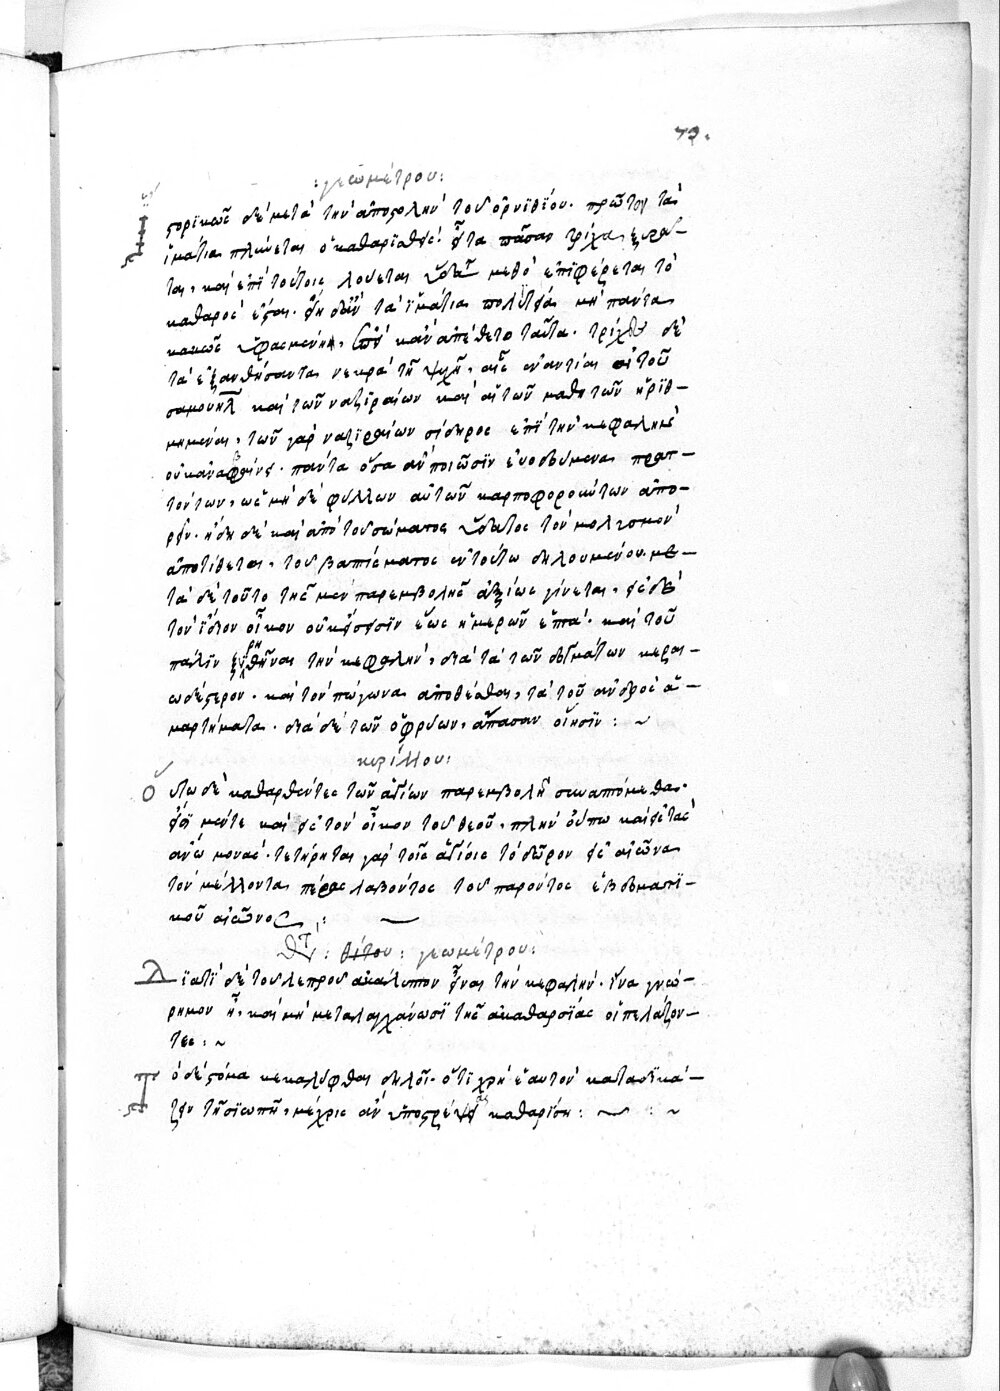 79.
: γεωμέτρου:
στορικῶς δὲ μετὰ τὴν ἀποστολὴν τοῦ ὀρνιθίου. πρῶτον τὰ
ἱμάτια πλύνεται ὁ καθαρισθείς. εἶτα πᾶσαν τρίχα ξυρᾶ-
ται, καὶ ἐπὶ τούτοις λούεται ὕδατι μεθὸ ἐπιφέρεται τὸ
καθαρὸς ἔσται. τὰ ἱμάτια μὴ πάντα
κακῶς ὑφασμένην, κἀν ἀπέθετο ταῦτα. τρίχες δὲ
τὰ ἐξανθήσαντα νεκρὰ τῇ ψυχῇ, αἷς ἐναντίαι αἱ τοῦ
σαμουὴλ καὶ τῶν ναζιραίων καὶ αἱ τῶν μαθητῶν ἠριθ-
μημέναι, τῶν γὰρ ναζιραίων σίδηρος ἐπὶ τὴν κεφαλὴν
οὐκ ἀναβαίνει. πάντα ὅσα ἂν ποιῶσιν εὐοδούμενα πρατ-
τόντων, ὡς μηδὲ φύλλων αὐτῶν καρποφορούντων ἀπο-
ρεῖν. ἤδη δὲ καὶ ἀπὸ τοῦ σώματος ὕδατος τὸν μολυσμὸν
ἀποτίθεται, τοῦ βαπτίσματος ἐν τούτω δηλουμένου. με-
τὰ δὲ τοῦτο τῆς μὲν παρεμβολῆς ἀξίως γίνεται, εἰς δὲ
τὸν ἴδιον οἶκον οὐκ εἴσεισιν ἕως ἡμερῶν ἑπτά. καὶ τοῦ
πάλιν ξυρηθῆναι τὴν κεφαλὴν, διὰ τὰ τῶν δογμάτων κερα-
ωδέστερον. καὶ τὸν πώγωνα ἀποθέσθαι, τὰ τοῦ ἀνδρὸς ἁ-
μαρτήματα. διὰ δὲ τῶν ὀφρύων, ἅπασαν οἴησιν : ~
κυρίλλου:
Οὕτω δὲ καθαρθέντες τῶν ἁγίων παρεμβολῇ συναπτόμεθα.
μέντε καὶ εἰς τὸν οἶκον τοῦ θεοῦ, πλὴν οὔπω καὶ εἰς τὰς
ἄνω μονάς. τετήρηται γὰρ τοῖς ἁγίοις τὸ δῶρον εἰς αἰῶνα
τὸν μέλλοντα πέρας λαβόντος τοῦ παρόντος ἑβδοματι-
κοῦ αἰῶνος :
: γεωμέτρου:
Διατί δὲ τοῦ λεπροῦ ἀκάλυπτον εἶναι τὴν κεφαλήν. ἵνα γνώ-
ριμον ᾖ, καὶ μὴ μεταλαγχάνωσι τῆς ἀκαθαρσίας οἱ πελάζον-
τες : ~
Τὸ δὲ στόμα κεκαλύφθαι δηλοῖ. ὅτι χρὴ ἑαυτὸν καταδικά-
ζειν τῇ σιωπῇ, μέχρις ἂν ὑποστρέψας καθαρίσῃ : ~ : ~